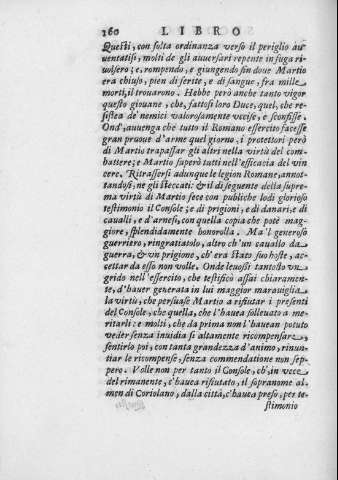 260 LIBRO
Questi, con folta ordinanza verso il periglio au
uentatisi, molti de gli auuersari repente in fuga ri
uolsero; e, rompendo, e giungendo sin doue Martio
era chiuso, pien di ferite, e di sangue, fra mille
morti, il trouarono. Hebbe però anche tanto vigor
questo giouane, che, fattosi loro Duce, quel, che re-
sistea de' nemici valorosamente vccise, e sconfisse.
Ond', auuenga che tutto il Romano essercito facesse
gran pruoue d'arme quel giorno, i protettori però
di Martio trapassar gli altri nella virtù del com-
battere; e Martio superò tutti nell'efficacia del vin
cere. Ritrassersi adunque le legion Romane, annot-
tandosi, ne gli steccati: & il dì seguente della supre-
ma virtù di Martio fece con publiche lodi glorioso
testimonio il Console; e di prigioni, e di danari, e di
caualli, e d'arnesi, con quella copia che potè mag-
giore, splendidamente honorolla. Ma 'l generoso
guerriero, ringratiatolo, altro ch'un cauallo da
guerra, & vn prigione, ch'era stato suo hoste, ac-
cettar da esso non volle. Onde leuossi tantosto vn
grido nell'essercito, che testificò assai chiaramen-
te, d'hauer generata in lui maggior marauiglia
la virtù, che persuase Martio a rifiutar i presenti
del Console, che quella, che l'hauea solleuato a me-
ritarli: e molti, che da prima non l'hauean potuto
veder senza inuidia sì altamente ricompensare,
sentirlo poi, con tanta grandezza d'animo, rinun-
tiar le ricompense, senza commendatione non sep-
pero. Volle non per tanto il Console, ch', in vece
del rimanente, c'hauea rifiutato, il sopranome al-
men di Coriolano, dalla città, c'hauea preso, per te-
stimonio